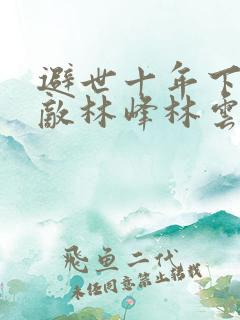 避世十年下
敵林峰林雲
飛魚二代
未經同意禁止轉載